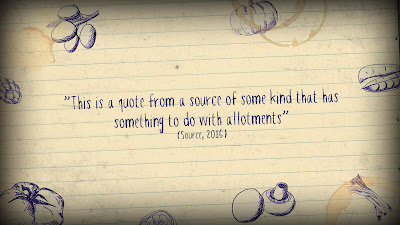 "This is a quote from a source of some kind that has
something to do with allotments"
(Source, 2016)